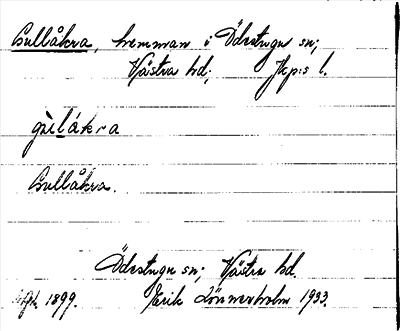 Gullåkra, hemman i Ödestugu sn;
Västra hd; Jkp:s l.
gùlåkra
Gullåkra.
Ödestugu sn; Västra hd.
1899. Erik Lönnerholm 1933.